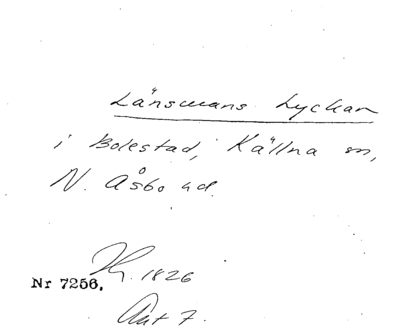 Länsmans Lyckan
i Bolestad, Källna sn,
N. Åsbo hd.
Kr. 1826
Nr 7256.
Akt 7.